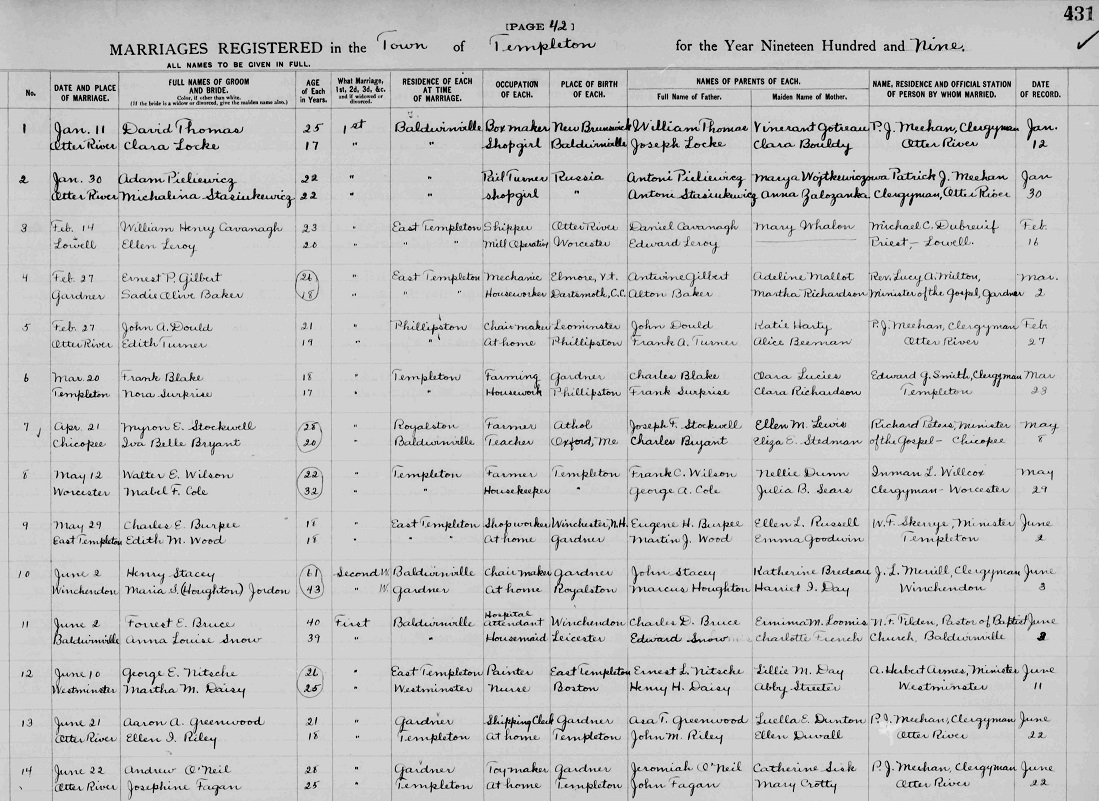 431
[PAGE 42]
MARRIAGES REGISTERED in the Town of Templeton for the Year Nineteen Hundred and Nine.
ALL NAMES TO BE GIVEN IN FULL.
No. DATE AND PLACE OF MARRIAGE. FULL NAMES OF GROOM AND BRIDE. Color, if other than white. (If the bride is a widow or divorced, give the maiden name also.) AGE of Each in Years. What Marriage, 1st, 2d, 3d, &c. and if widowed or divorced. RESIDENCE OF EACH AT TIME OF MARRIAGE. OCCUPATION OF EACH. PLACE OF BIRTH OF EACH. NAMES OF PARENTS OF EACH. Full Name of Father. Maiden Name of Mother. NAME, RESIDENCE AND OFFICIAL STATION OF PERSON BY WHOM MARRIED. DATE OF RECORD.
1 Jan. 11 David Thomas 25 1st Baldwinville Box maker New Brunswick William Thomas Vinerant Gotreau P. J. Meehan, Clergyman Jan.
Otter River Clara Locke 17 " " Shopgirl Baldwinville Joseph Locke Clara Bouldy Otter River 12
2 Jan. 30 Adam Pieliewicz 22 " " Riel Turner Russia Antoni Pieliewicz Marya Wojtkewiczowa Patrick J. Meehan Jan
Otter River Michalina Stasiukewicz 22 " " shopgirl " Antoni Stasiukewicz Anna Zalozanka Clergyman, Otter River 30
3 Feb. 14 William Henry Cavanagh 23 " East Templeton Shipper Otter River Daniel Cavanagh Mary Whalon Michael C. Dubreuif Feb.
Lowell Ellen Leroy 20 " " " Mill Operative Worcester Edward Leroy Priest - Lowell. 16
4 Feb. 27 Ernest P. Gilbert 26 " East Templeton Mechanic Elmore, Vt. Antwine Gilbert Adeline Mallot Rev. Lucy A. Milton, Mar.
Gardner Sadie Olive Baker 18 " " " Houseworker Dartsmoth, C.C. Alton Baker Martha Richardson Minister of the Gospel, Gardner 2
5 Feb. 27 John A. Dould 21 " Phillipston Chair maker Leominster John Dould Katie Harty P. J. Meehan, Clergyman Feb
Otter River Edith Turner 19 " " At home Phillipston Frank A. Turner Alice Beeman Otter River 27
6 Mar. 20 Frank Blake 18 " Templeton Farming Gardner Charles Blake Clara Lucies Edward G. Smith, Clergyman Mar
Templeton Nora Surprise 17 " " Housework Phillipston Frank Surprise Clara Richardson Templeton 23
7 Apr. 21 Myron E. Stockwell 28 " Royalston Farmer Athol Joseph F. Stockwell Ellen M. Lewis Richard Peters, Minister May
Chicopee Iva Belle Bryant 20 " Baldwinville Teacher Oxford, Me Charles Bryant Eliza E. Stedman of the Gospel - Chicopee 8
8 May 12 Walter E. Wilson 22 " Templeton Farmer Templeton Frank C. Wilson Nellie Dunn Inman L. Willcox May
Worcester Mabel F. Cole 32 " " Housekeeper " George A. Cole Julia B. Sears Clergyman - Worcester 29
9 May 29 Charles E. Burpee 18 " East Templeton Shop worker Winchester, N.H. Eugene H. Burpee Ellen L. Russell W. F. Skerrye, Minister June
East Templeton Edith M. Wood 18 " " " At home Gardner Martin J. Wood Emma Goodwin Templeton 2
10 June 2 Henry Stacey 61 Second W. Baldwinville Chair maker Gardner John Stacey Katherine Bredeau J. L. Merrill, Clergyman June
Winchendon Maria S. (Houghton) Jordon 43 " W. Gardner At home Royalston Marcus Houghton Harriet I. Day Winchendon 3
11 June 2 Forrest E. Bruce 40 First Baldwinville Hospital attendant Winchendon Charles D. Bruce Ermina M. Loomis N. F. Tilden, Pastor of Baptist June
Baldwinville Anna Louise Snow 39 " " Housemaid Leicester Edward Snow Charlotte French Church, Baldwinville
12 June 10 George E. Nitsche 26 " East Templeton Painter East Templeton Ernest L. Nitsche Lillie M. Day A. Herbert Armes, Minister June
Westminster Martha M. Daisy 25 " Westminster Nurse Boston Henry H. Daisy Abby Streeter Westminster 11
13 June 21 Aaron A. Greenwood 21 " Gardner Shipping Clerk Gardner Asa T. Greenwood Luella E. Dunton P. J. Meehan, Clergyman June
Otter River Ellen I. Riley 18 " Templeton At home Templeton John M. Riley Ellen Duvall Otter River 22
14 June 22 Andrew O'Neil 28 " Gardner Toymaker Gardner Jeromiah O'Neil Catherine Sisk P. J. Meehan, Clergyman June
Otter River Josephine Fagan 25 " Templeton At home Templeton John Fagan Mary Crotty Otter River 22